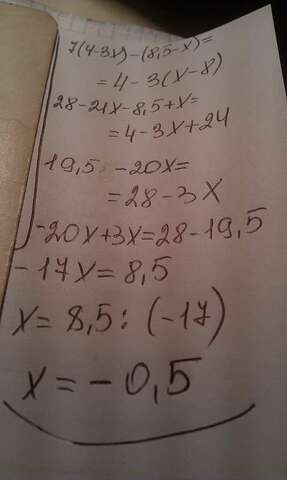 7(4-3x)-(8,5-x)=
=4-3(x-8)
28-21x-8,5+x=
=4-3x+24
19,5 -20x=
=28-3x
-20x+3x=28-19,5
-17x=8,5
x=8,5:(-17)
x=-0,5